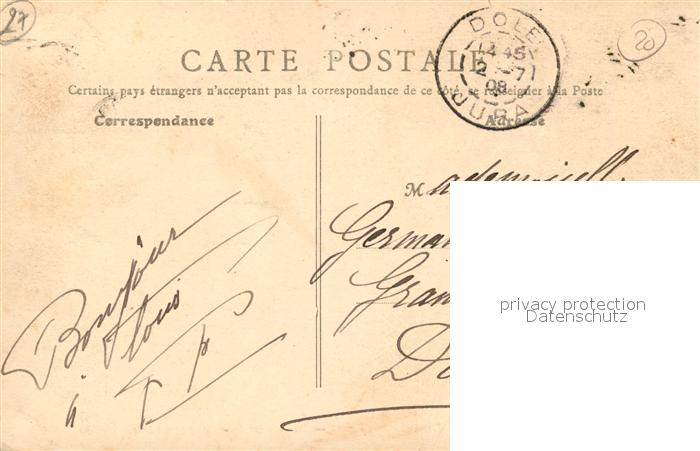 27
20
CARTE POSTALE
Certains pays étrangers n'acceptant pas la correspondance de ce côté, se renseigner à la Poste
DOLE
14 45
2 - 7
08
JURA
Correspondance
Adresse
Mademoiselle
Bonjour
à tous
German
Gran
Do
privacy protection
Datenschutz